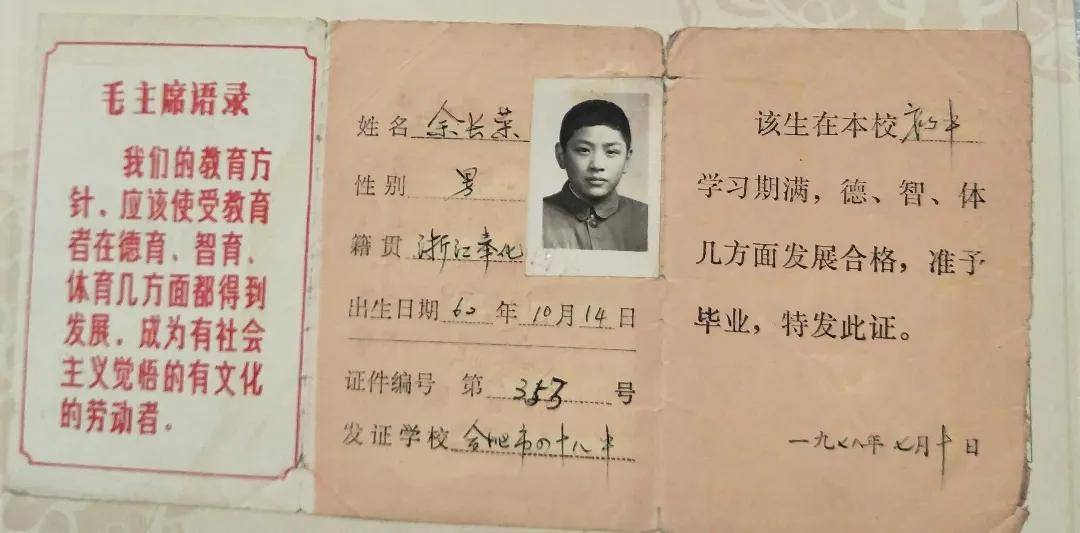 毛主席语录
我们的教育方
针，应该使受教育
者在德育、智育、
体育几方面都得到
发展，成为有社会
主义觉悟的有文化
的劳动者。
姓名 余长荣
性别 男
籍贯 浙江奉化
出生日期 60 年 10 月 14 日
证件编号 第 353 号
发证学校 合肥市四十八中
该生在本校
学习期满，德、智、体
几方面发展合格，准予
毕业，特发此证。
一九七八年七月十日